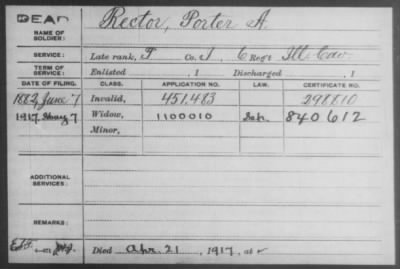 DEAD
NAME OF SOLDIER: Rector, Porter A.
SERVICE: Late rank, Co. I, 6 Reg't Ill. Cav
TERM OF SERVICE: Enlisted , 1 Discharged , 1
DATE OF FILING. CLASS. APPLICATION NO. LAW. CERTIFICATE NO.
1882, June 7 Invalid, 451,483 298810
1917 May 7 Widow, 1100010 840612
Minor,
ADDITIONAL SERVICES:
REMARKS:
Died Apr. 21, 1917, at